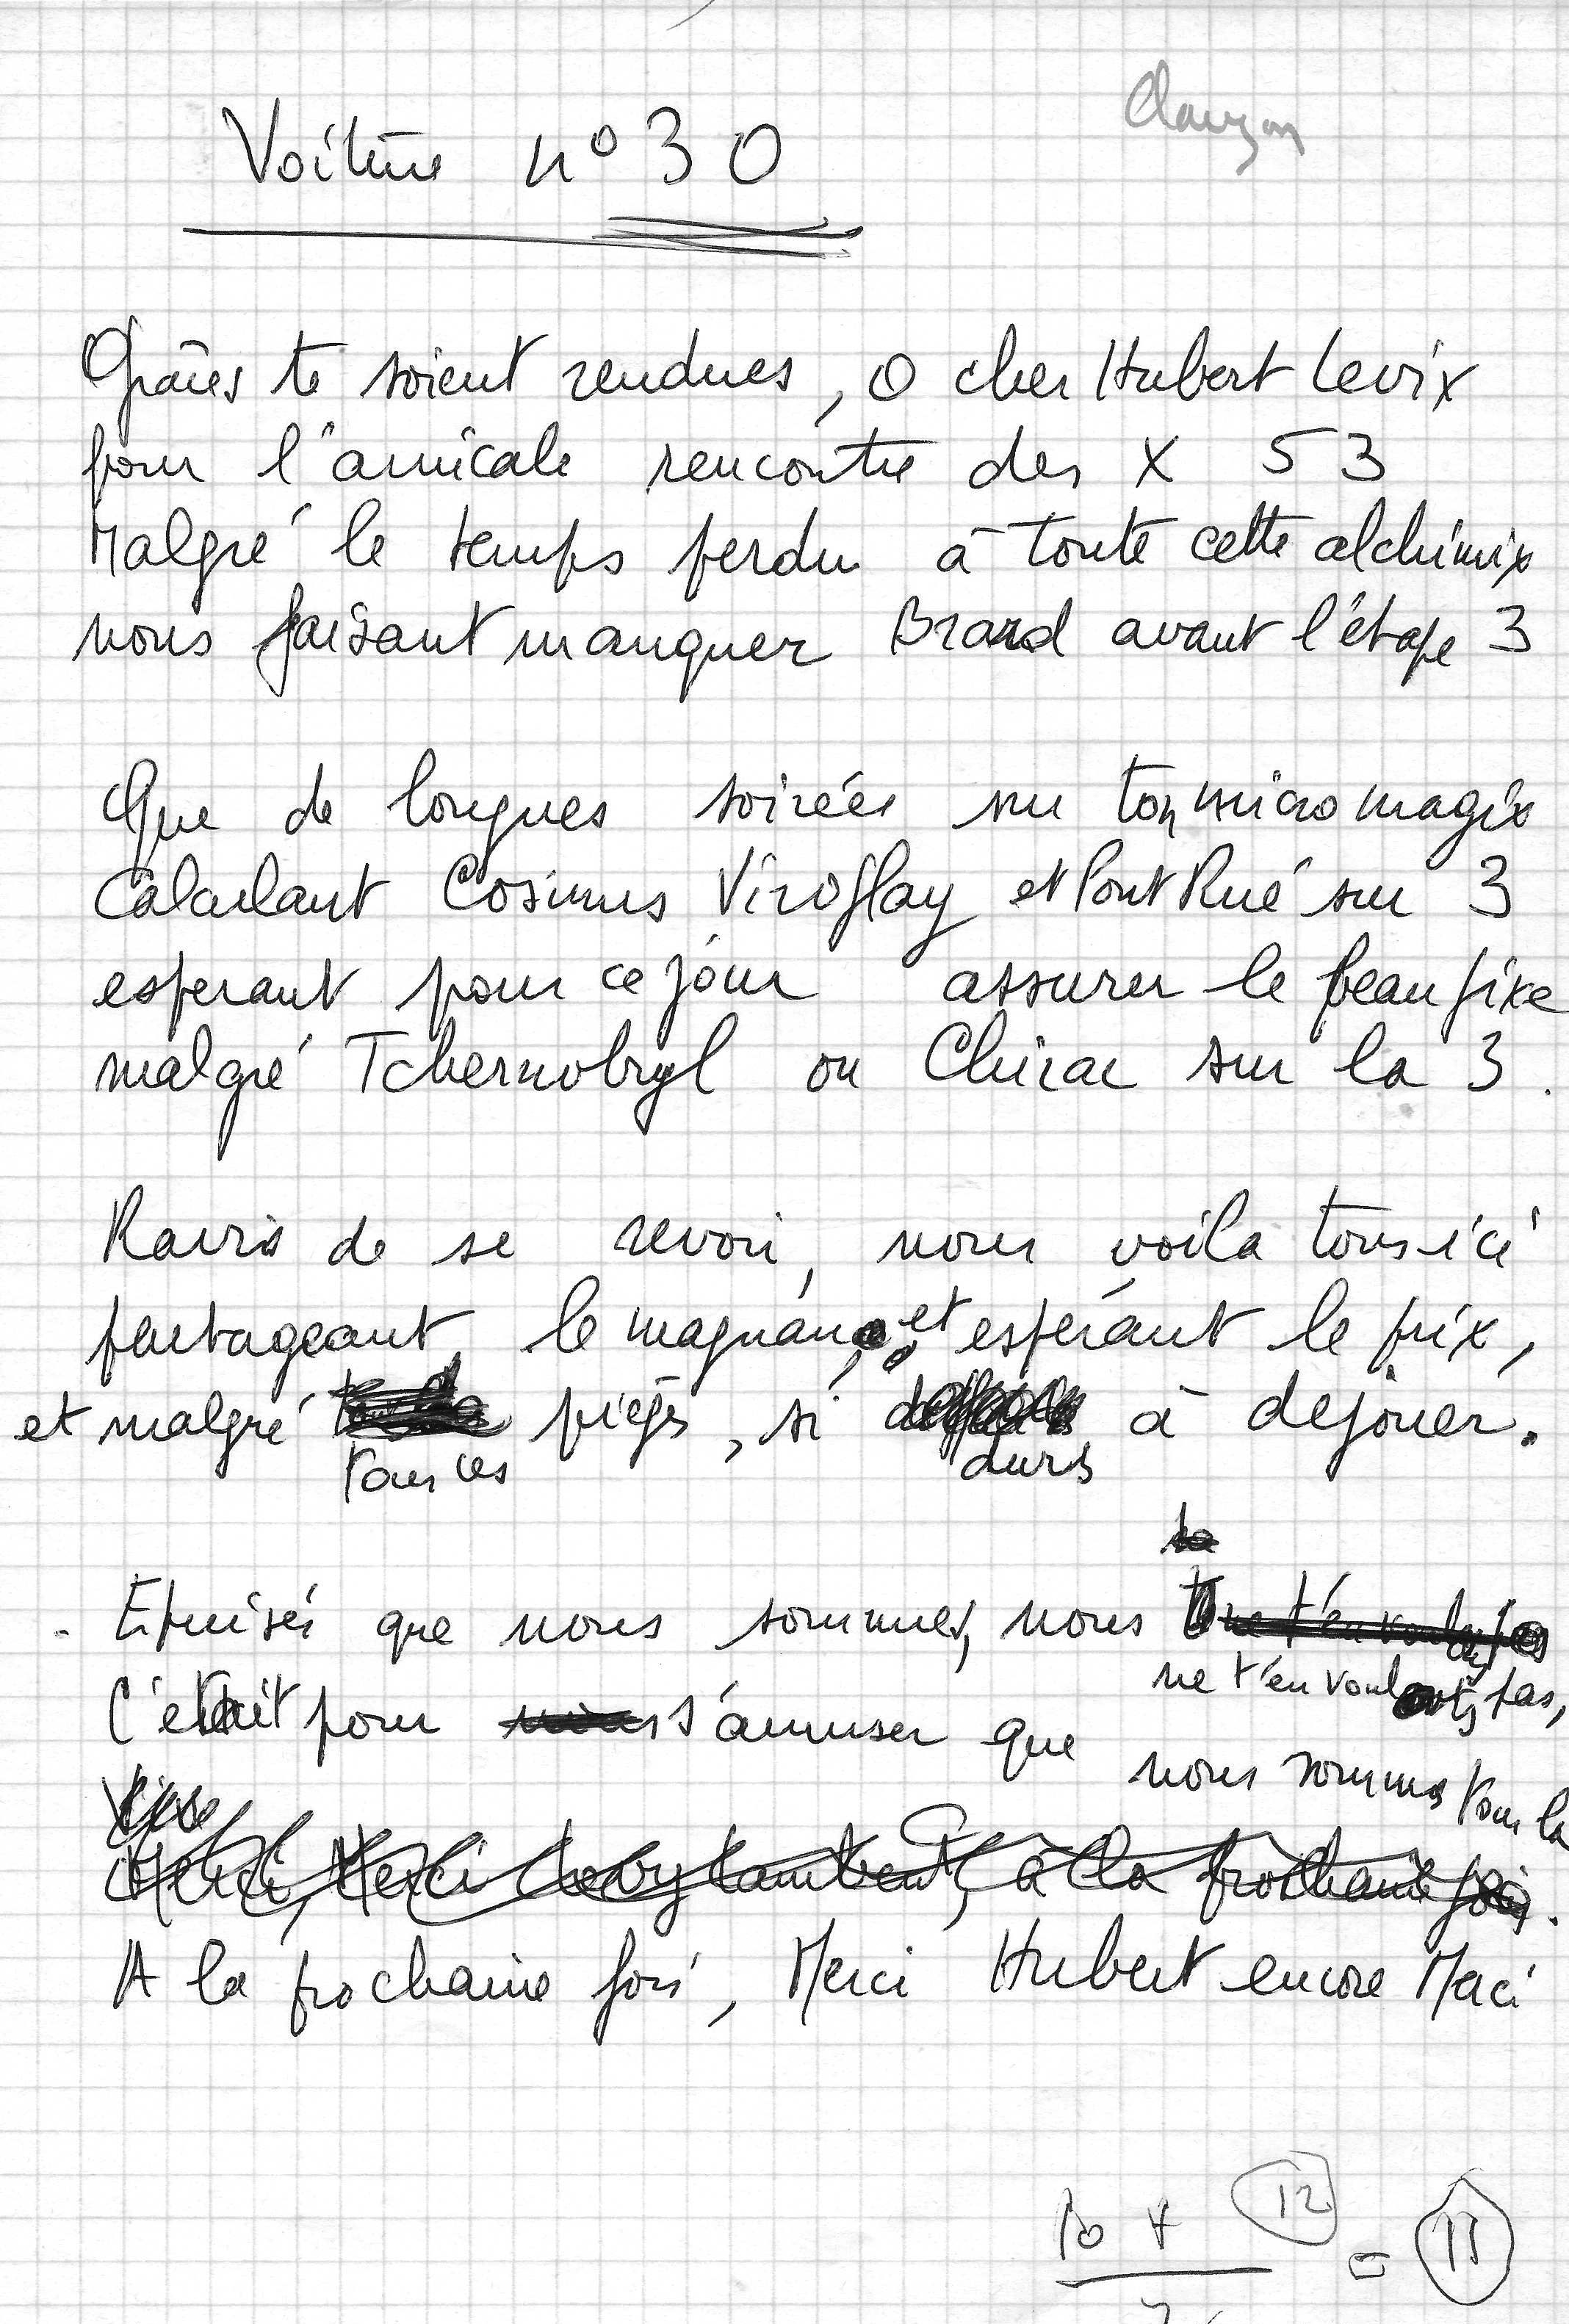 Clauzon
Voiture n° 30
Grâces te soient rendues, O cher Hubert Levix
pour l'amicale rencontre des X 53
Malgré le temps perdu à toute cette alchimix
nous faisant manquer Brard avant l'étape 3
Que de longues soirées sur ton micro magix
calculant Cosinus Viroflay et Pont Rué sur 3
esperant pour ce jour assurer le beau fixe
malgré Tchernobyl ou Chirac sur la 3.
Ravis de se revoir, nous voila tous ici
partageant, le magnan, et espérant le prix,
et malgré tous ces pièges, si durs à dejouer.
Epuisés que nous sommes, nous
ne t'en voulons pas,
C'était pour s'amuser que nous sommes tous la
Merci, Merci Levy Lambert, à la prochaine fois.
A la prochaine fois, Merci Hubert encore Merci
10 + 12 = 11
2